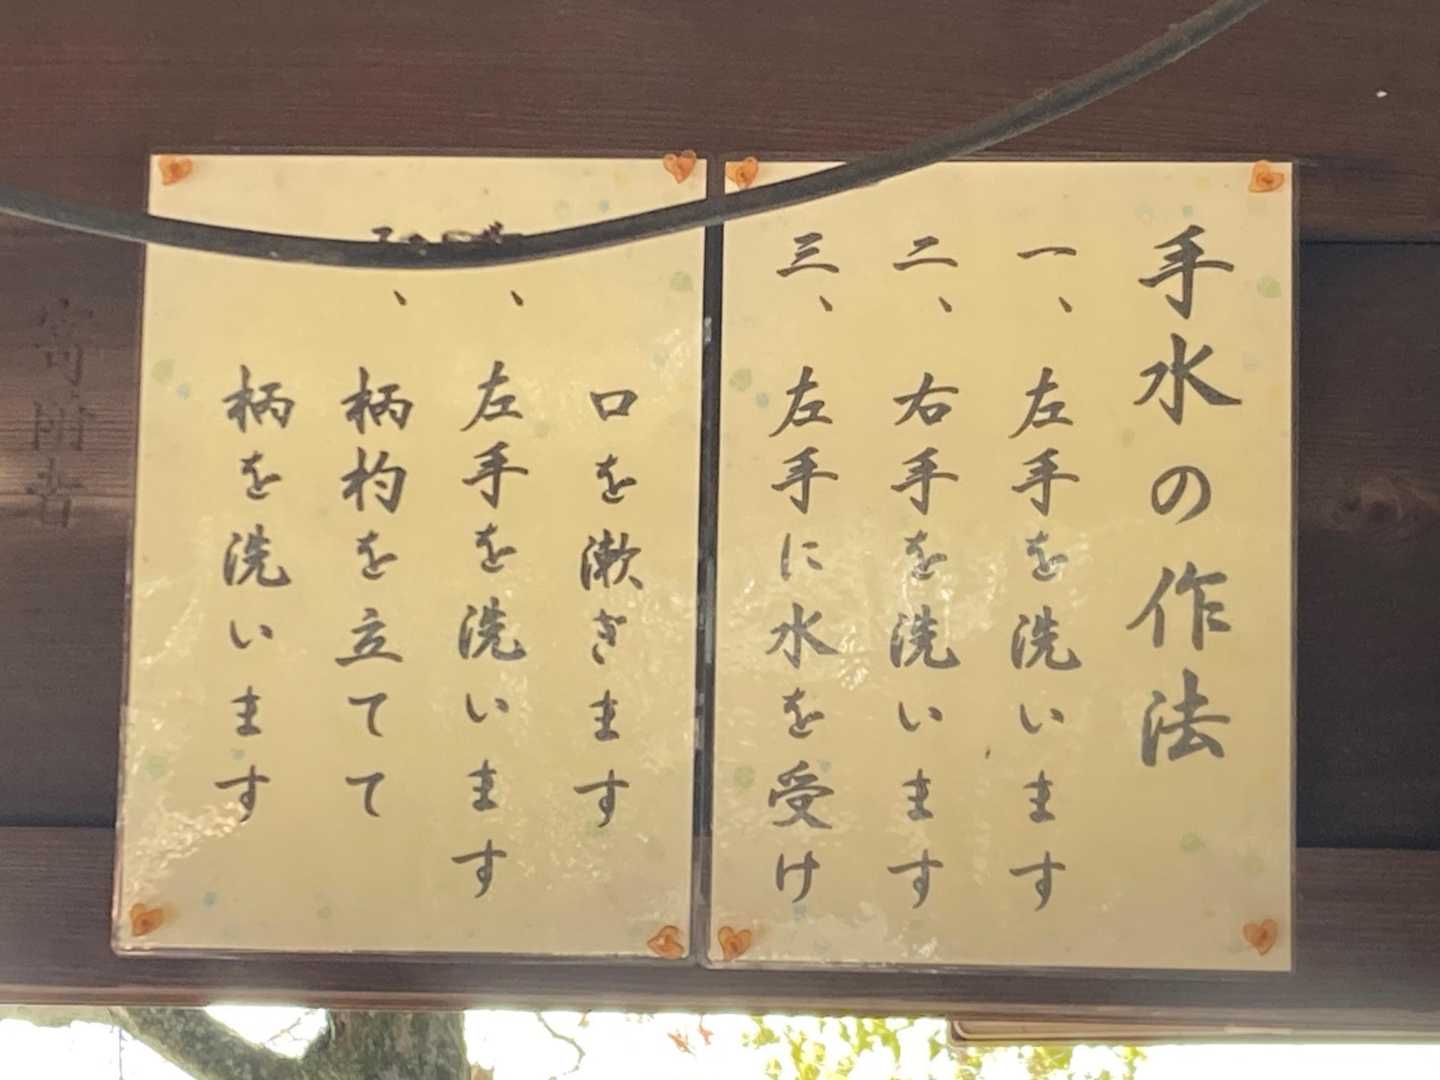 手水の作法
一、左手を洗います
二、右手を洗います
三、左手に水を受け
口を漱ぎます
、左手を洗います
、柄杓を立てて
柄を洗います
寄附者